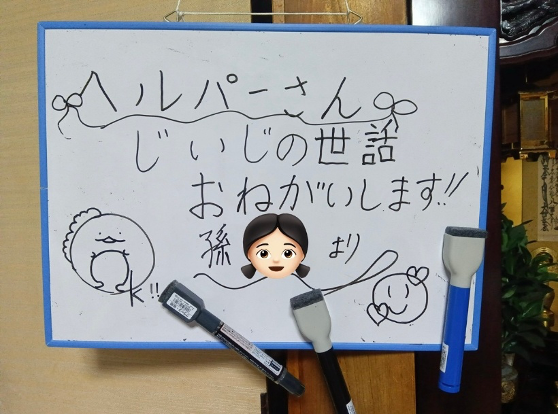 ヘルパーさん
じぃじの世話
おねがいします!!
孫 より
k!!